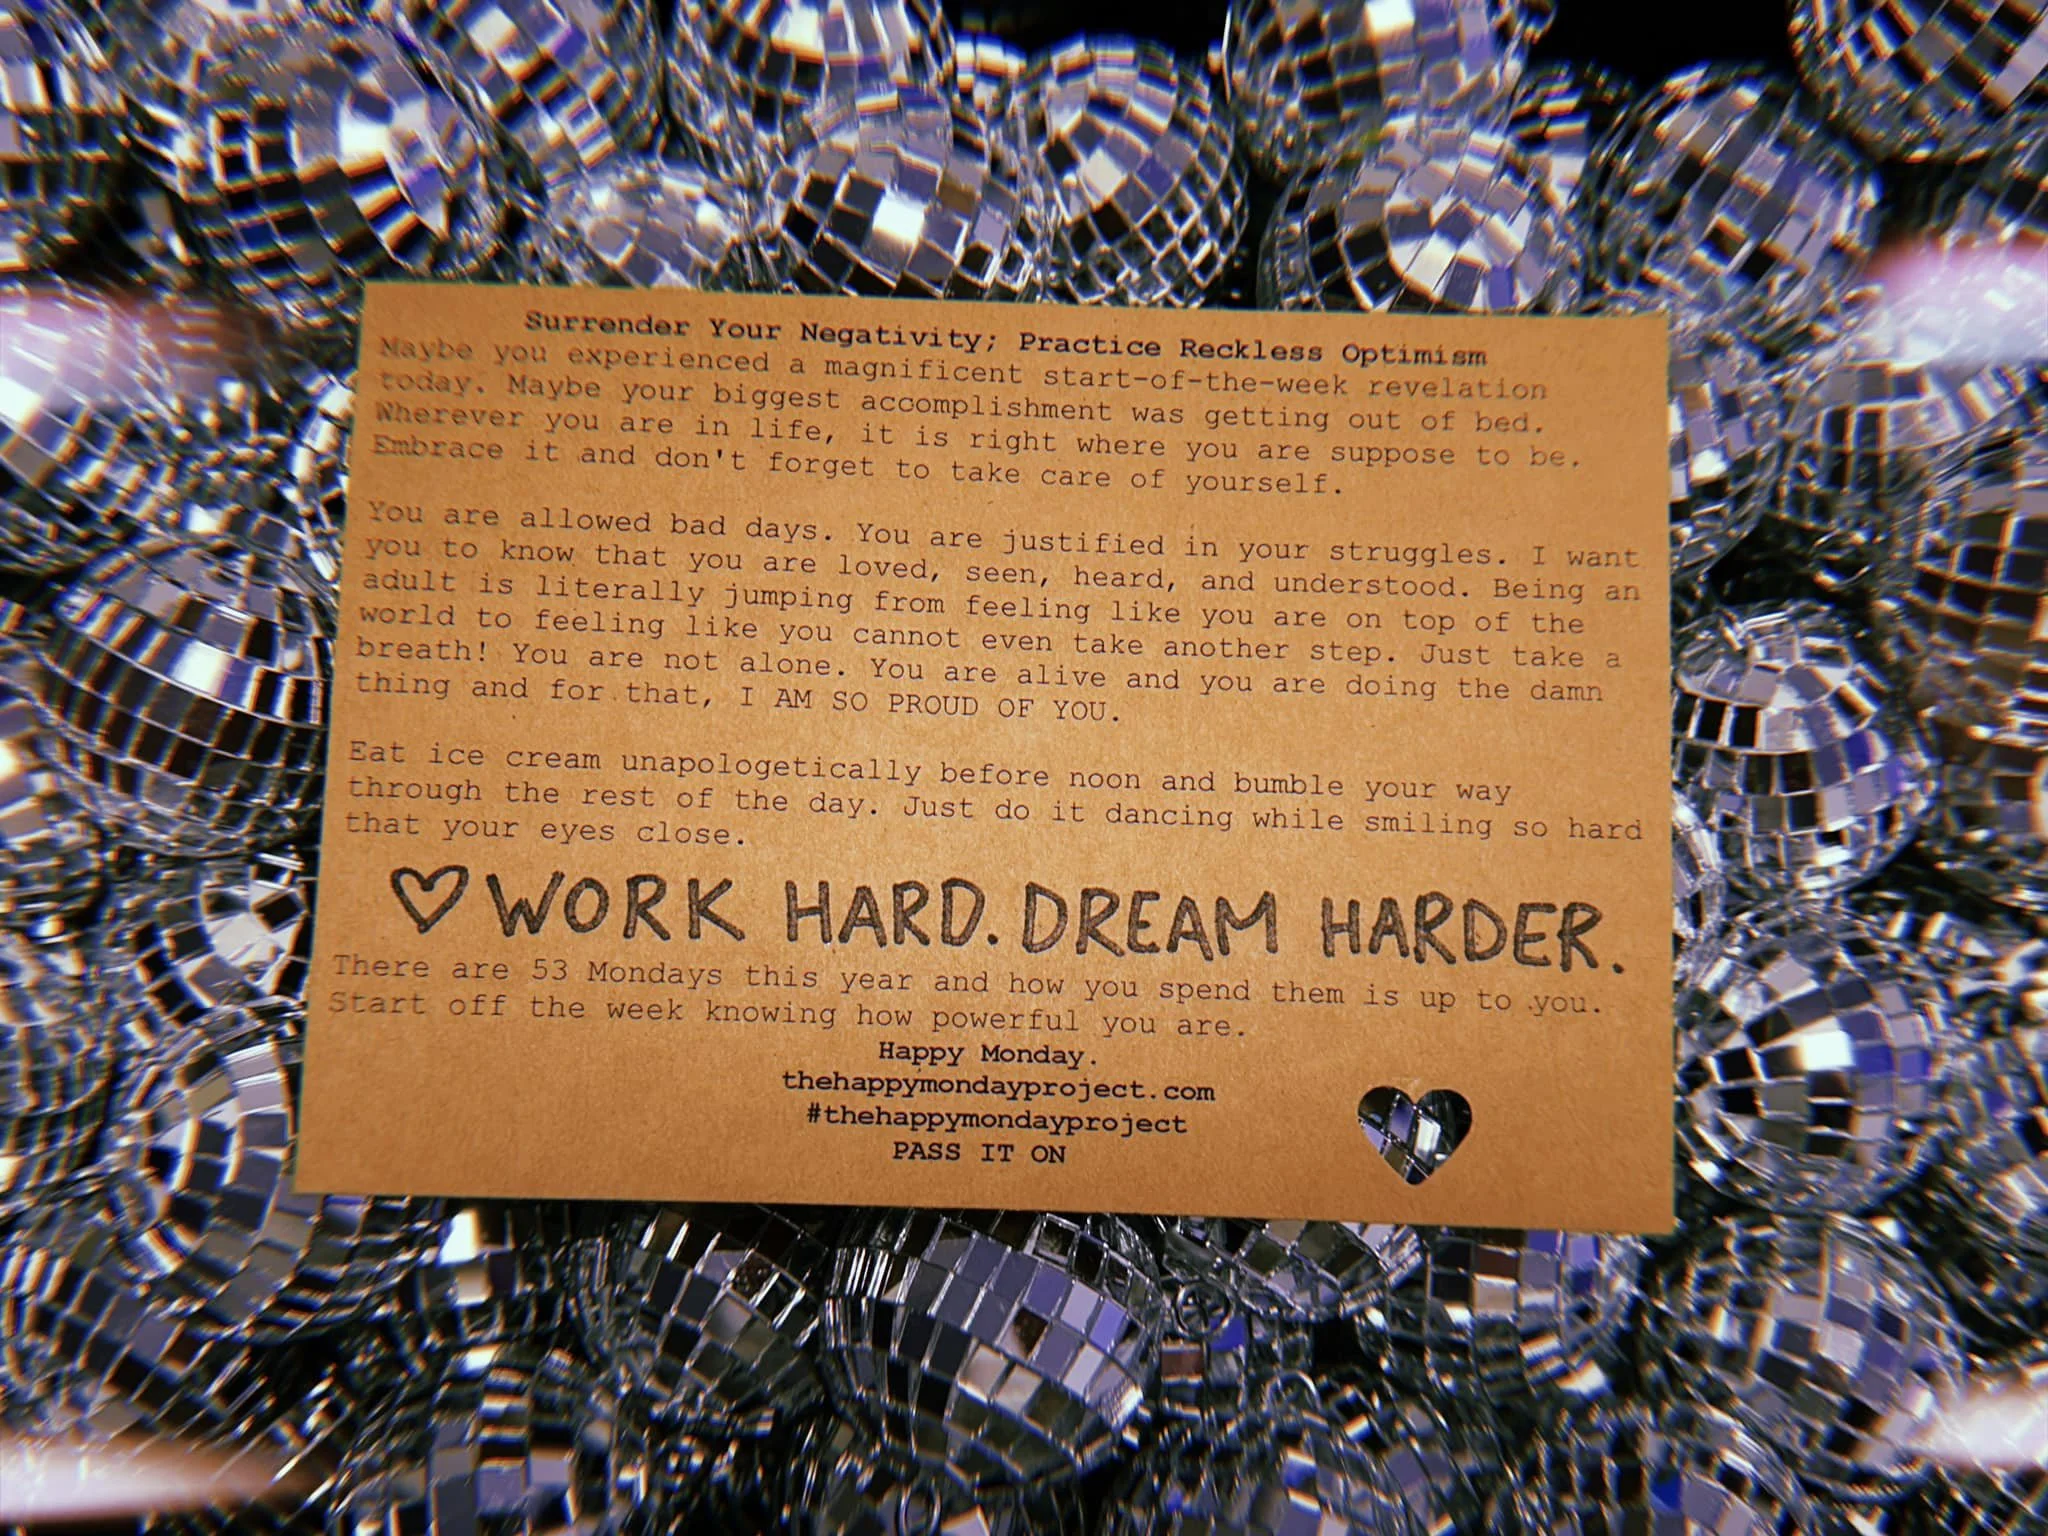 Surrender Your Negativity; Practice Reckless Optimism
Maybe you experienced a magnificent start-of-the-week revelation
today. Maybe your biggest accomplishment was getting out of bed.
Wherever you are in life, it is right where you are suppose to be.
Embrace it and don't forget to take care of yourself.
You are allowed bad days. You are justified in your struggles. I want
you to know that you are loved, seen, heard, and understood. Being an
adult is literally jumping from feeling like you are on top of the
world to feeling like you cannot even take another step. Just take a
breath! You are not alone. You are alive and you are doing the damn
thing and for that, I AM SO PROUD OF YOU.
Eat ice cream unapologetically before noon and bumble your way
through the rest of the day. Just do it dancing while smiling so hard
that your eyes close.
♡ WORK HARD. DREAM HARDER.
There are 53 Mondays this year and how you spend them is up to you.
Start off the week knowing how powerful you are.
Happy Monday.
thehappymondayproject.com
#thehappymondayproject
PASS IT ON